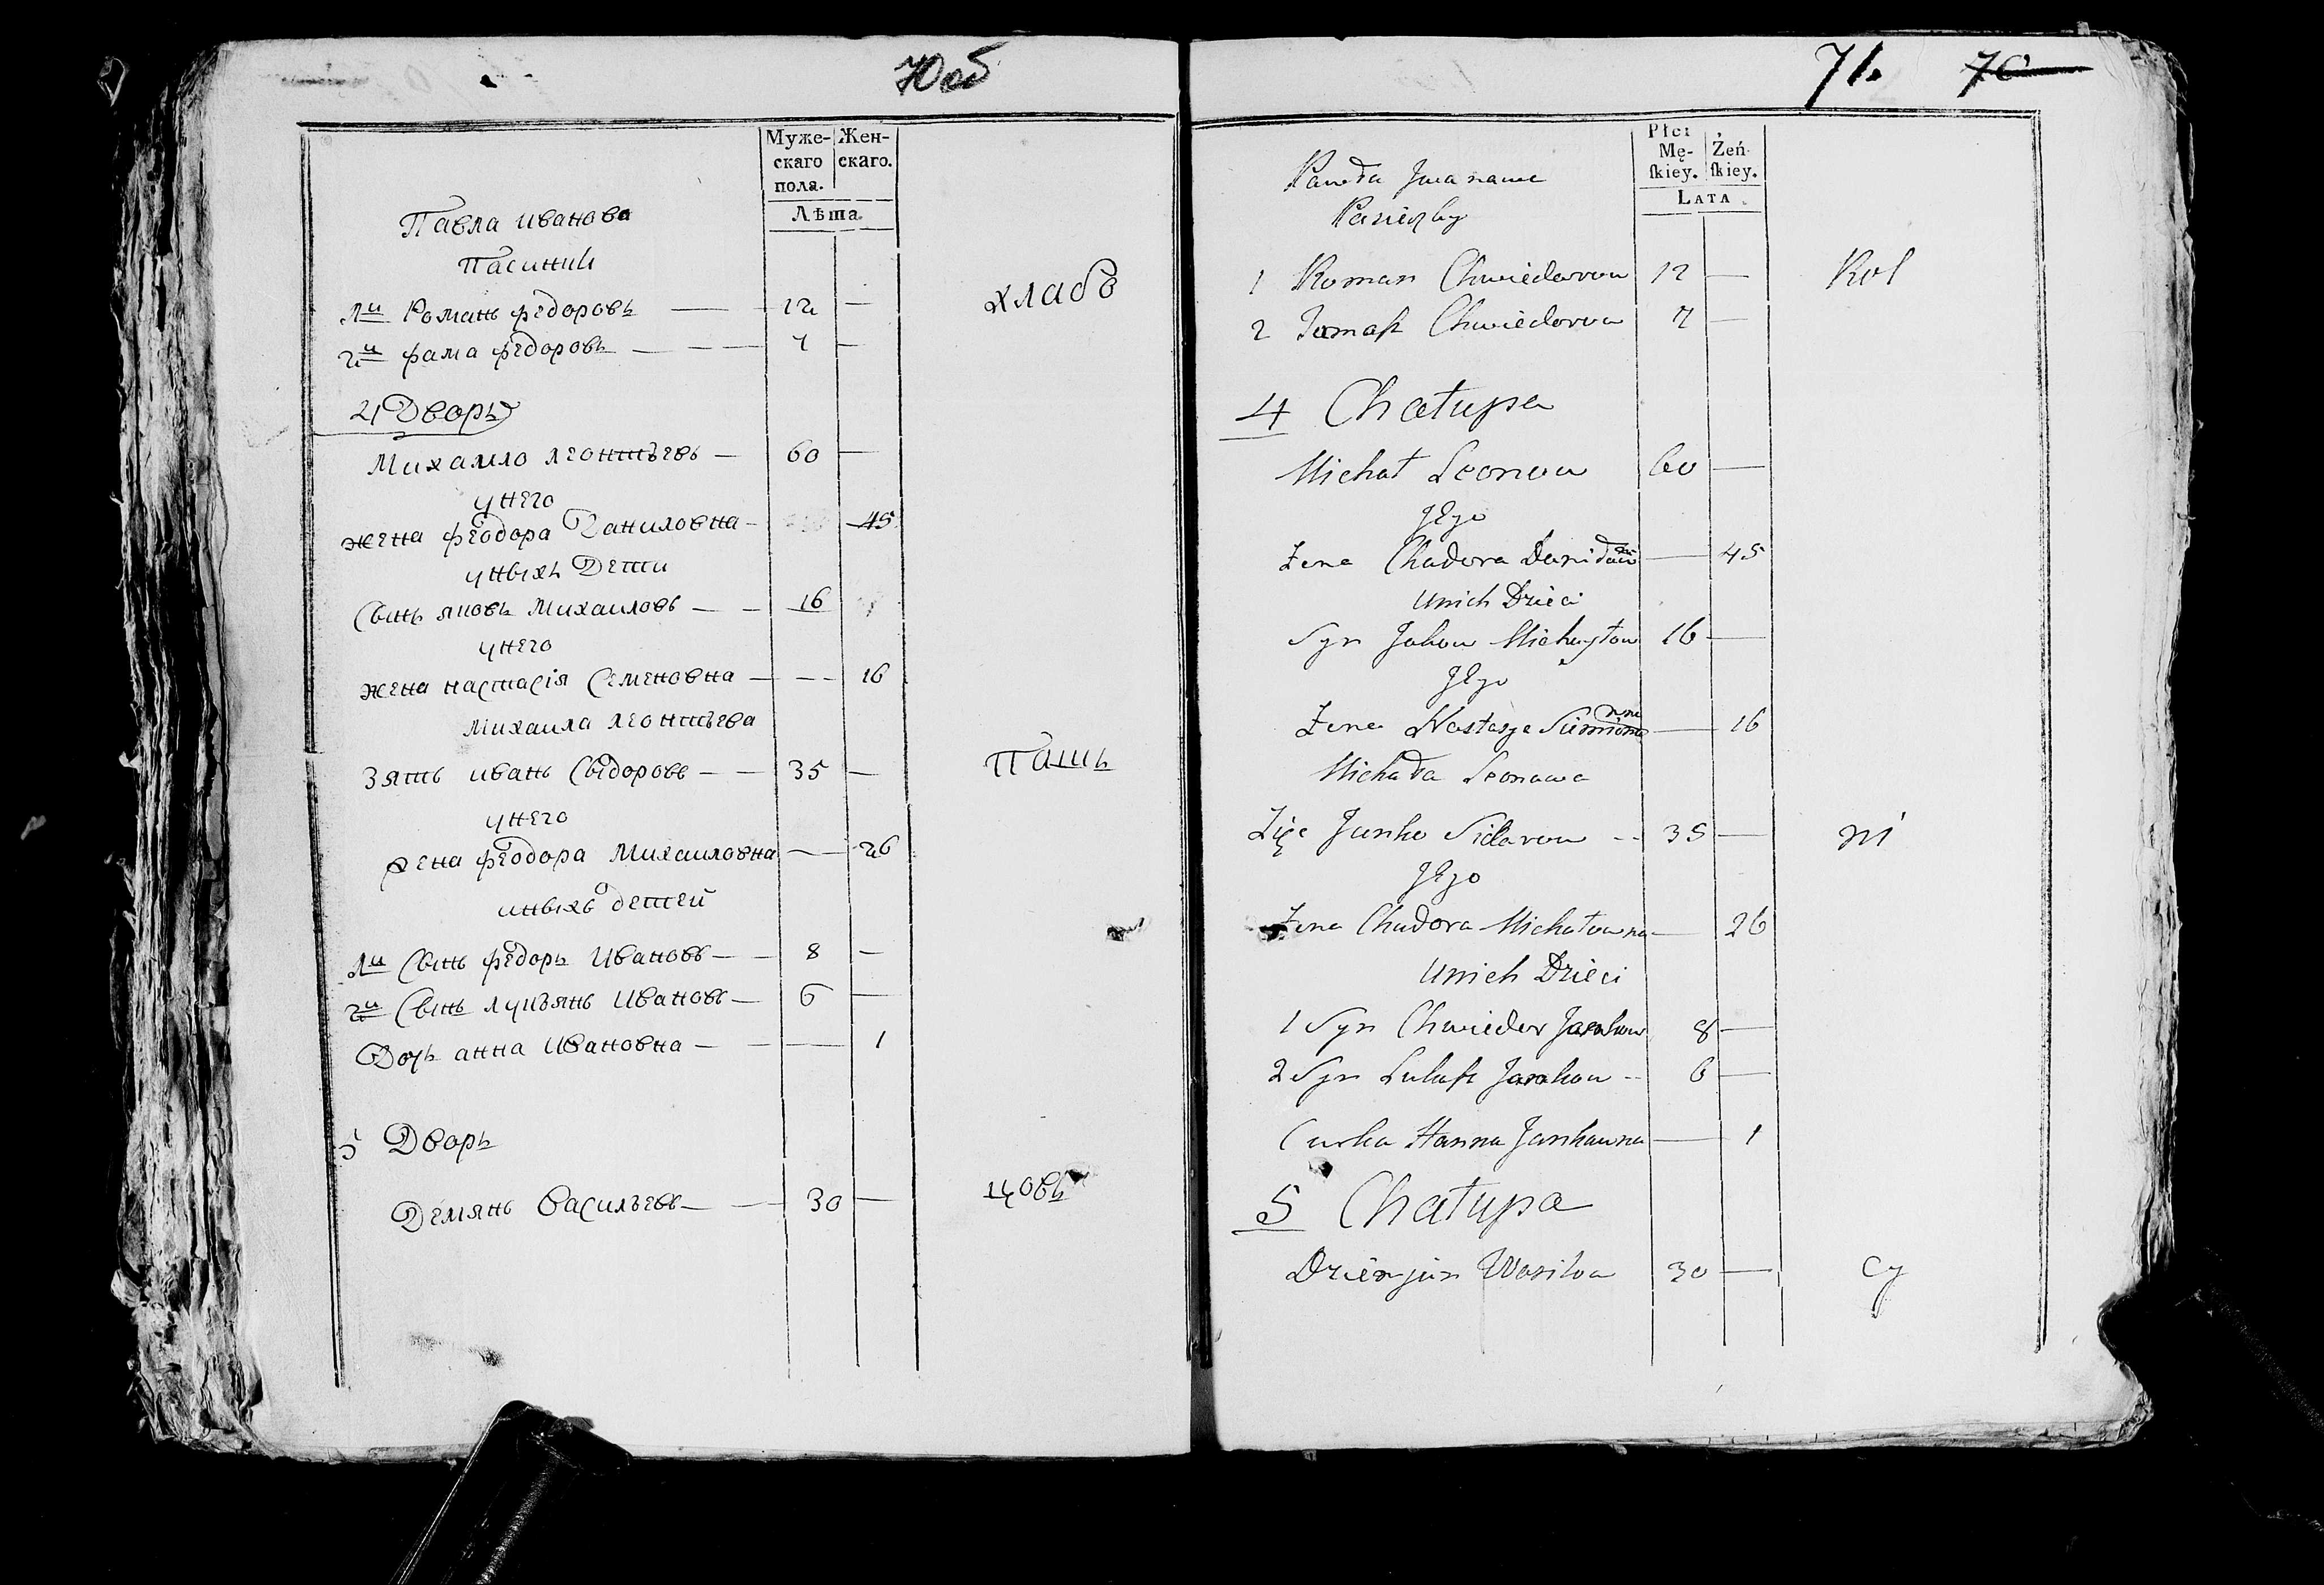 70 об
Муже-
скаго
пола.
Жен-
скаго.
Лѣта.
Павла Иванова
Пасинки
1й Романъ Федоровъ — 12 —
хлабо
2й Фама Федоровъ — — — 7 —
4 Дворъ
Михаило Леонтьевъ — 60 —
у него
жена Феодора Даниловна — 45
у ныхъ дети
Сынъ Яковъ Михаиловъ — — 16
у него
жена Настасія Семеновна — — — 16
Михаила Леонтьева
Зять Иванъ Сидоровъ — — 35 —
Пашъ
у него
жена Феодора Михаиловна — 26
у ныхъ детей
1й Сынъ Федоръ Ивановъ — — 8 —
2й Сынъ Лукьянъ Ивановъ — 6 —
Дочь Анна Ивановна — — — 1
5 Дворъ
Демянъ Васильевъ — — 30 —
цовъ
71. 70
Płci
Mę-
ſkiey.
Żeń-
ſkiey.
LATA
Pawła Jwanawa
Pasierzby
1 Roman Chwiedorow 12 —
Kol
2 Tomaſz Chwiedorow 7 —
4 Chałupa
Michał Leonow 60 —
Jego
Żona Chadora Daniłow — 45
U nich Dzieci
Syn Jakow Michayłow 16 —
Jego
Żona Nastazya Siemiono wna — 16
Michała Leonawa
Zięć Janko Sidorow -- 35 —
ni
Jego
Żona Chadora Michałowna — 26
U nich Dzieci
1 Syn Chwiedor Jankow 8 —
2 Syn Łukaſz Jankow -- 6 —
Curka Hanna Jankowna — 1
5 Chałupa
Dziemjan Wasilow 30 —
Cy